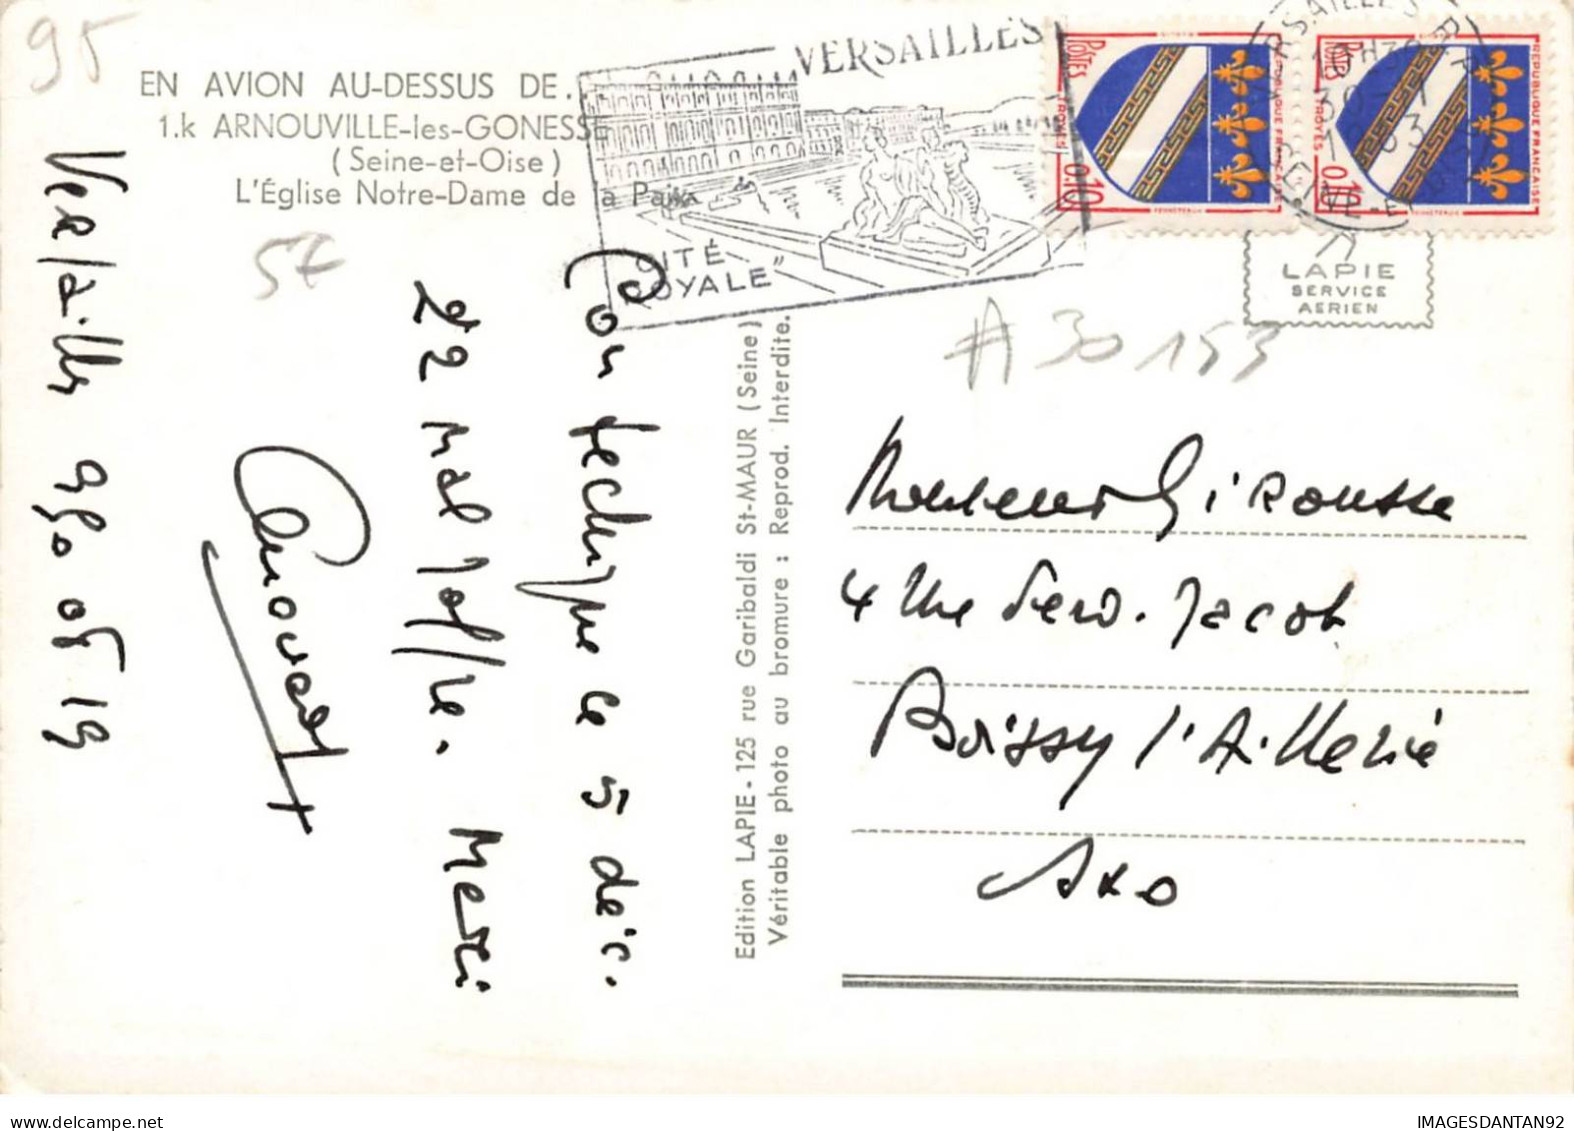 95
EN AVION AU-DESSUS DE.
1.k ARNOUVILLE-les-GONESSE
(Seine-et-Oise)
L'Église Notre-Dame de la Paix
VERSAILLES
CITÉ
ROYALE"
POSTES
TROYES
0.10
REPUBLIQUE FRANÇAISE
TROYES
0.10
REPUBLIQUE FRANÇAISE
LAPIE
SERVICE
AERIEN
A 30153
57
Con technique le 5 déc.
22 Mal Joffre. Merci
Versailles 950 05 19
Edition LAPIE - 125 rue Garibaldi St-MAUR (Seine)
Véritable photo au bromure : Reprod. Interdite.
Monsieur Girousse
4 Rue Ferd. Jacob
Boissy l'Aillerie
IMAGESDANTAN92